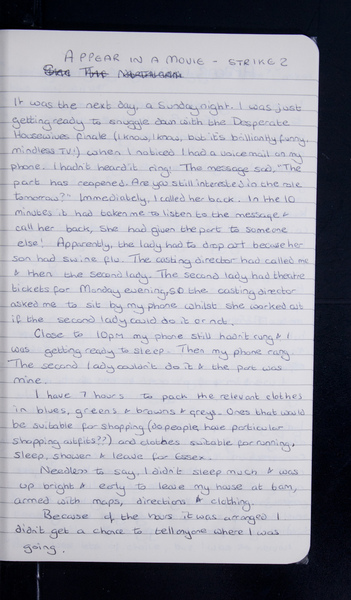 APPEAR IN A MOVIE - STRIKE 2
It was the next day, a Sunday night. I was just
getting ready to snuggle down with the Desperate
Housewives finale (I know, I know, but it's brilliantly funny,
mindless TV!) when I noticed I had a voicemail on my
phone. I hadn't heard it ring! The message said, "The
part has reopened. Are you still interested in the role
tomorrow?" Immediately, I called her back. In the 10
minutes it had taken me to listen to the message &
call her back, she had given the part to someone
else! Apparently, the lady had to drop out because her
son had swine flu. The casting director had called me
& then the second lady. The second lady had theatre
tickets for Monday evening, so the casting director
asked me to sit by my phone whilst she worked out
if the second lady could do it or not.
Close to 10pm my phone still hadn't rung & I
was getting ready to sleep. Then my phone rang.
The second lady couldn't do it & the part was
mine.
I have 7 hours to pack the relevant clothes
in blues, greens & browns & greys. Ones that would
be suitable for shopping (do people have particular
shopping outfits??) and clothes suitable for running,
sleep, shower & leave for Essex.
Needless to say, I didn't sleep much & was
up bright & early to leave my house at 6am,
armed with maps, directions & clothing.
Because of the hours it was arranged I
didn't get a chance to tell anyone where I was
going.